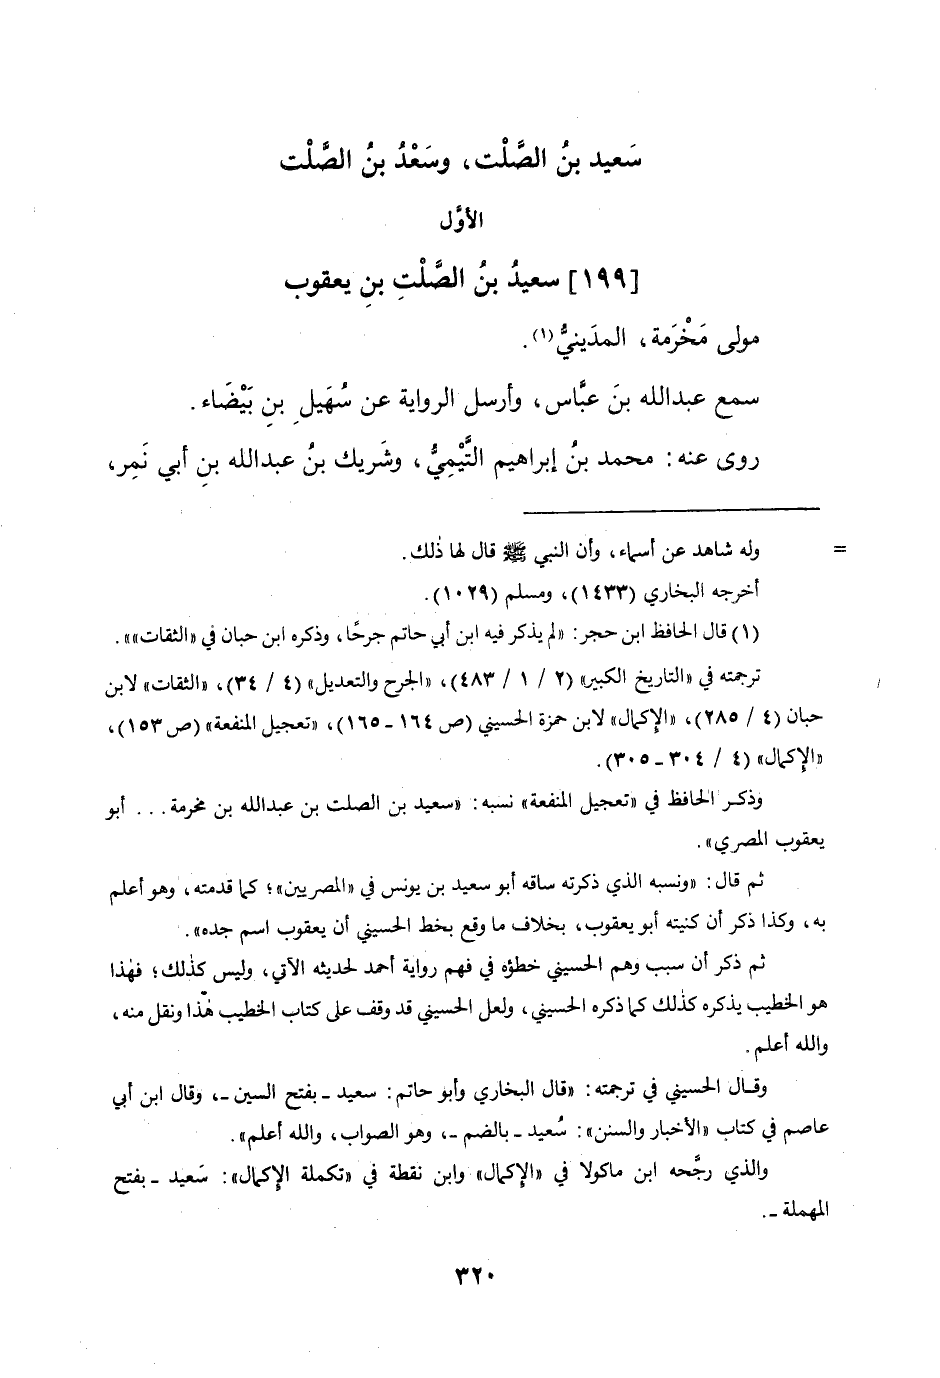 سَعيد بنُ الصَّلْت، وسَعْدُ بنُ الصَّلْت
الأوَّل
[١٩٩] سعيدُ بنُ الصَّلْتِ بنِ يعقوب
مولى مَخْرَمة، المدَينيُّ(١).
سمع عبدالله بنَ عبَّاس، وأرسل الرواية عن سُهَيلِ بنِ بَيْضَاء.
روى عنه: محمد بنُ إبراهيم التَّيْمِيُّ، وشَريك بنُ عبدالله بنِ أبي نَمِر،
= وله شاهد عن أسماء، وأن النبي ﷺ قال لها ذٰلك.
أخرجه البخاري (١٤٣٣)، ومسلم (١٠٢٩).
(١) قال الحافظ ابن حجر: «لم يذكر فيه ابن أبي حاتم جرحًا، وذكره ابن حبان في «الثقات»».
ترجمته في «التاريخ الكبير» (٢ / ١ / ٤٨٣)، «الجرح والتعديل» (٤ / ٣٤)، «الثقات» لابن
حبان (٤ / ٢٨٥)، «الإكمال» لابن حمزة الحسيني (ص ١٦٤ - ١٦٥)، «تعجيل المنفعة» (ص ١٥٣)،
«الإكمال» (٤ / ٣٠٤ - ٣٠٥).
وذكر الحافظ في «تعجيل المنفعة» نسبه: «سعيد بن الصلت بن عبدالله بن مخرمة... أبو
يعقوب المصري».
ثم قال: «ونسبه الذي ذكرته ساقه أبو سعيد بن يونس في «المصريين»؛ كما قدمته، وهو أعلم
به، وكذا ذكر أن كنيته أبو يعقوب، بخلاف ما وقع بخط الحسيني أن يعقوب اسم جده».
ثم ذكر أن سبب وهم الحسيني خطؤه في فهم رواية أحمد لحديثه الآتي، وليس كذٰلك؛ فهٰذا
هو الخطيب يذكره كذٰلك كما ذكره الحسيني، ولعل الحسيني قد وقف على كتاب الخطيب هٰذا ونقل منه،
والله أعلم.
وقال الحسيني في ترجمته: «قال البخاري وأبو حاتم: سعيد ـ بفتح السين ـ، وقال ابن أبي
عاصم في كتاب «الأخبار والسنن»: سُعيد ـ بالضم ـ، وهو الصواب، والله أعلم».
والذي رجَّحه ابن ماكولا في «الإكمال» وابن نقطة في «تكملة الإكمال»: سَعيد ـ بفتح
المهملة ـ.
٣٢٠